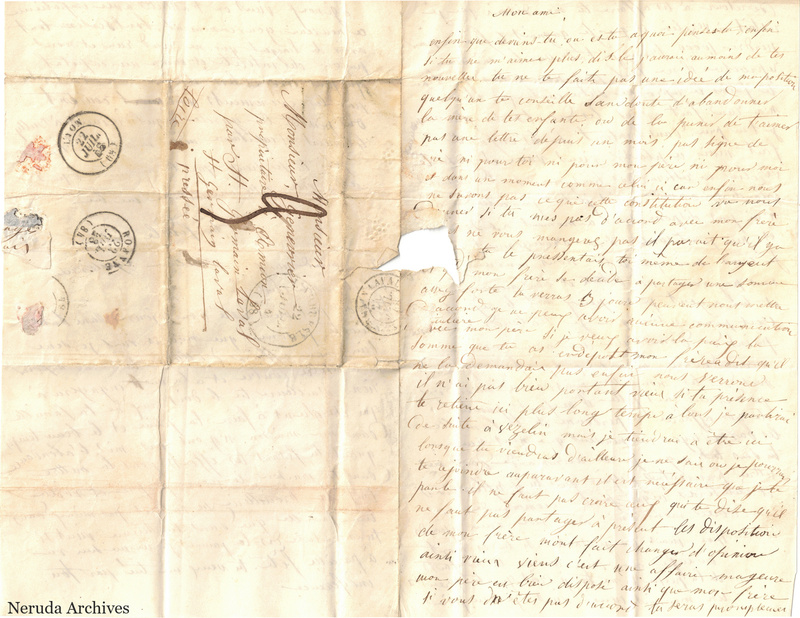 Mon ami,
enfin que deviens tu ou es tu a quoi penses tu enfin
si tu ne m'aimes plus, dis le j'aurai au moins de tes
nouvelles tu ne te fait pas une idée de ma position
quelqu'un te conseille sans doute d'abandonner
la mère de tes enfants, ou de la priver de t'aimer
pas une lettre depuis un mois pas signe de
vie ni pour toi ni pour mon père ni pour moi
et dans un moment comme celui ci car enfin nous
ne savons pas ce que cette constitution va nous
donner si tu n'es pas d'accord avec mon frère
ne vous mangerez pas il parait qu'il y a
te pressentais toi même de l'argent
mon frère se décide a partager une somme
assez forte tu verras 5 jours peuvent nous mettre
d'accord je ne peux avoir aucune communication
avec mon père si je veux avoir la paix la
somme que tu as en depot mon frère a dit qu'il
ne la demandait pas enfin nous verrons
il n'ai pas bien portant viens si ta présence
te retient ici plus long temps alors je partirai
de suite à Vezelin mais je tiendrai a être ici
lorsque tu viendras d'ailleurs je ne sais ou je pourrai
te rejoindre auparavant il est nécessaire que je te
parle il ne faut pas croire ceux qui te dise qu'il
ne faut pas partager à présent les disposition
de mon frère m'ont fait changer d'opinion
ainsi viens viens c'est une affaire majeure
mon père est bien disposé ainsi que mon frère
si vous n'êtes pas d'accord tu seras promptement
Monsieur
Monsieur
propriétaire
par St Germain Laval
St Germain Laval
Loire
pressée
8
LYON
22
JUIL.
(68)
ROANNE
(84)
Neruda Archives